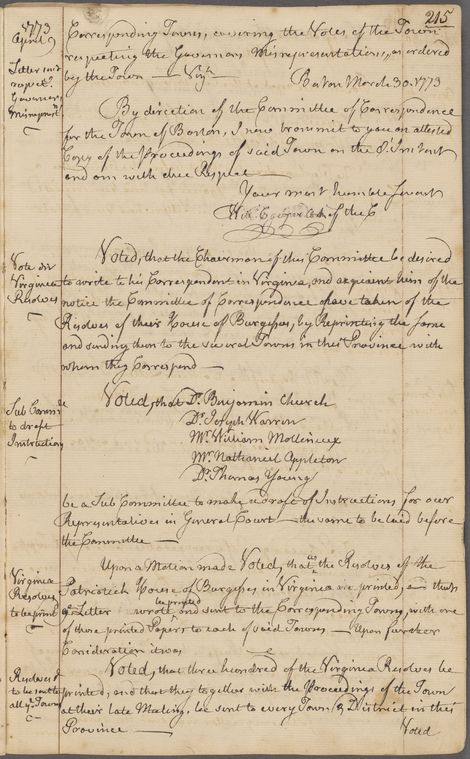 215
1773
April 9
Corresponding Towns, covering the Votes of the Town
respecting the Governors Misrepresentations, as ordered
by the Town — Viz.t
Letter sent
respect.g
Governors
Misreprest.n
Boston March 30. 1773
By direction of the Committee of Correspondence
for the Town of Boston, I now transmit to you an attested
Copy of the Proceedings of said Town on the 8. Instant
and am with due Respect —
Your most humble Servant
Will.m Cooper Clerk of the C
Vote on
Virginia
Resolves
Voted, that the Chairman of this Committee be desired
to write to his Correspondent in Virginia, and acquaint him of the
notice the Committee of Correspondence have taken of the
Resolves of their House of Burgesses, by Reprinting the same
and sending them to the several Towns in this Province with
whom they Correspond —
Sub Comm.e
to draft
Instructions
Voted, that D.r Benjamin Church
D.r Joseph Warren
M.r William Mollineux
M.r Nathaniel Appleton
D.r Thomas Young
be a Sub Committee to make a draft of Instructions for our
Representatives in General Court — the same to be laid before
the Committee —
Virginia
Resolves
to be print.d
Upon a Motion made Voted, that as the Resolves of the
Patriotick House of Burgesses in Virginia are printed, and
Letter wrote be printed and sent to the Corresponding Towns, with one
of those printed Papers to each of said Towns — Upon further
Consideration it was
Resolves
to be sent to
all y.e Towns
Voted, that three hundred of the Virginia Resolves be
printed, and that they together with the Proceedings of the Town
at their late Meeting, be sent to every Town & District in this
Province —
Voted